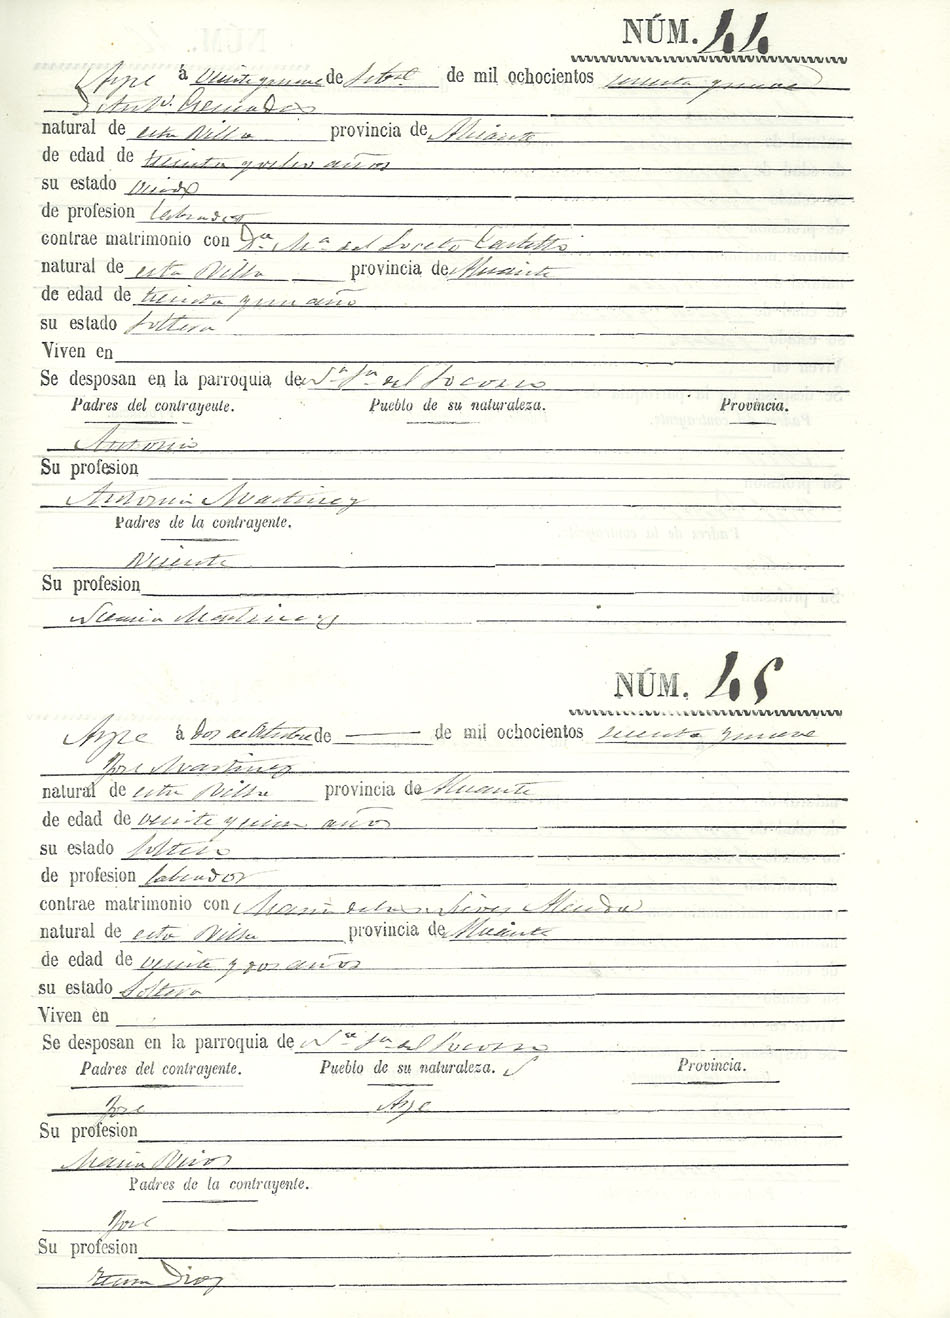 NÚM. 44
Aspe á veinte y nueve de Setbre. de mil ochocientos sesenta y nueve
D. Antº.
natural de esta Villa provincia de Alicante
de edad de treinta y ocho años
su estado viudo
de profesion labrador
contrae matrimonio con Dª Mª del Socorro
natural de esta Villa provincia de Alicante
de edad de treinta y un año
su estado soltera
Viven en
Se desposan en la parroquia de Nª Sª del Socorro
Padres del contrayente. Pueblo de su naturaleza. Provincia.
Antonio
Su profesion
Antonia Martinez
Padres de la contrayente.
Vicente
Su profesion
Martinez
NÚM. 45
Aspe á Dos de Octubre de — de mil ochocientos sesenta y nueve
José Martinez
natural de esta Villa provincia de Alicante
de edad de veinte y cinco años
su estado soltero
de profesion labrador
contrae matrimonio con Maria de las Nieves
natural de esta Villa provincia de Alicante
de edad de veinte y dos años
su estado soltera
Viven en
Se desposan en la parroquia de Nª Sª del Socorro
Padres del contrayente. Pueblo de su naturaleza. Provincia.
José Aspe
Su profesion
Maria
Padres de la contrayente.
José
Su profesion